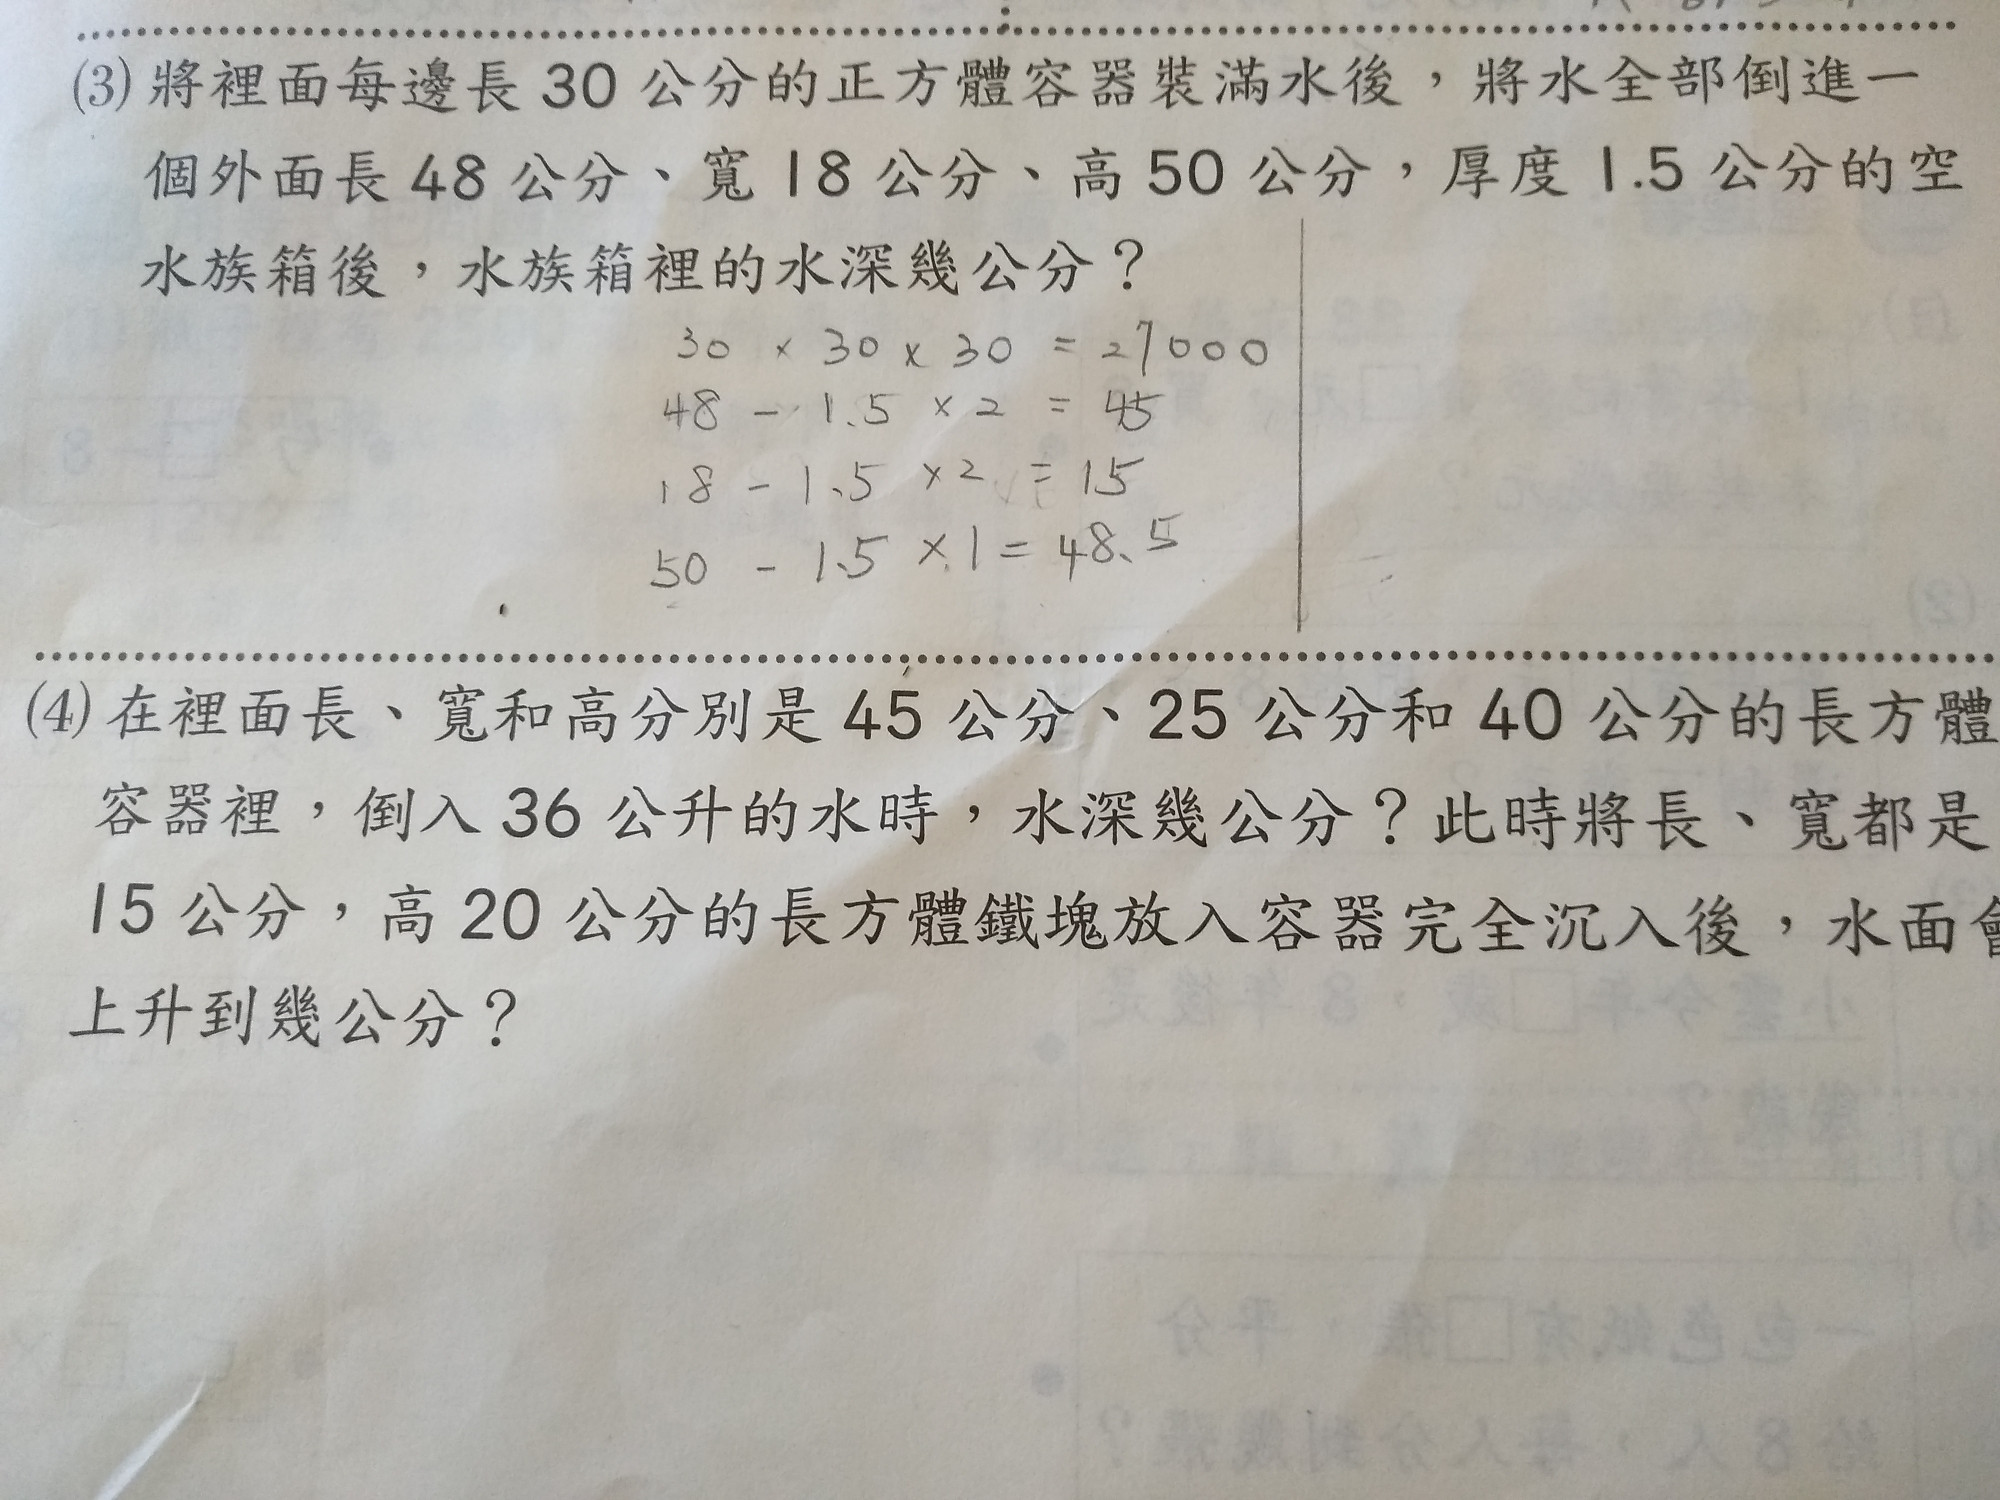 (3) 將裡面每邊長 30 公分的正方體容器裝滿水後，將水全部倒進一
個外面長 48 公分、寬 18 公分、高 50 公分，厚度 1.5 公分的空
水族箱後，水族箱裡的水深幾公分？
30 × 30 × 30 = 27000
48 - 1.5 × 2 = 45
18 - 1.5 × 2 = 15
50 - 1.5 × 1 = 48.5
(4) 在裡面長、寬和高分別是 45 公分、25 公分和 40 公分的長方體
容器裡，倒入 36 公升的水時，水深幾公分？此時將長、寬都是
15 公分，高 20 公分的長方體鐵塊放入容器完全沉入後，水面會
上升到幾公分？